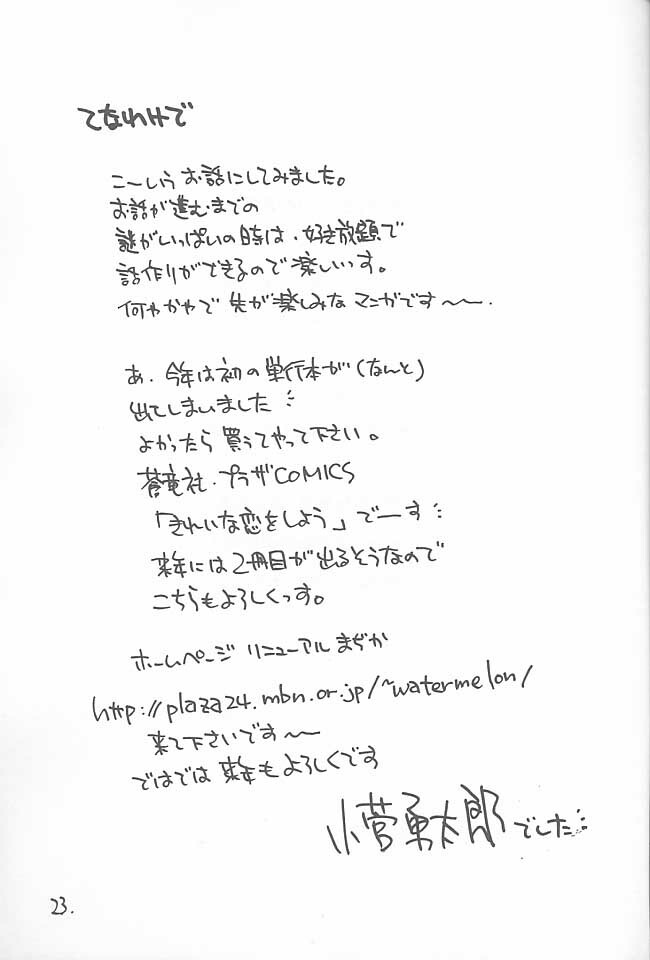 てなわけで
こ〜いう お話にしてみました。
お話が進むまでの
謎がいっぱいの時は、好き放題で
話作りができるので楽しいっす。
何やかやで 先が楽しみな マンガです〜〜．
あ、今年は初の単行本が(なんと)
出てしまいました
よかったら 買ってやって下さい。
蒼竜社・プラザCOMICS
「きれいな恋をしよう」でーす
来年には2冊目が出るそうなので
こちらもよろしくっす。
ホームページ リニューアル まぢか
http://plaza24.mbn.or.jp/~watermelon/
来て下さいです〜〜
ではでは 来年もよろしくです
小菅勇太郎でした
23.